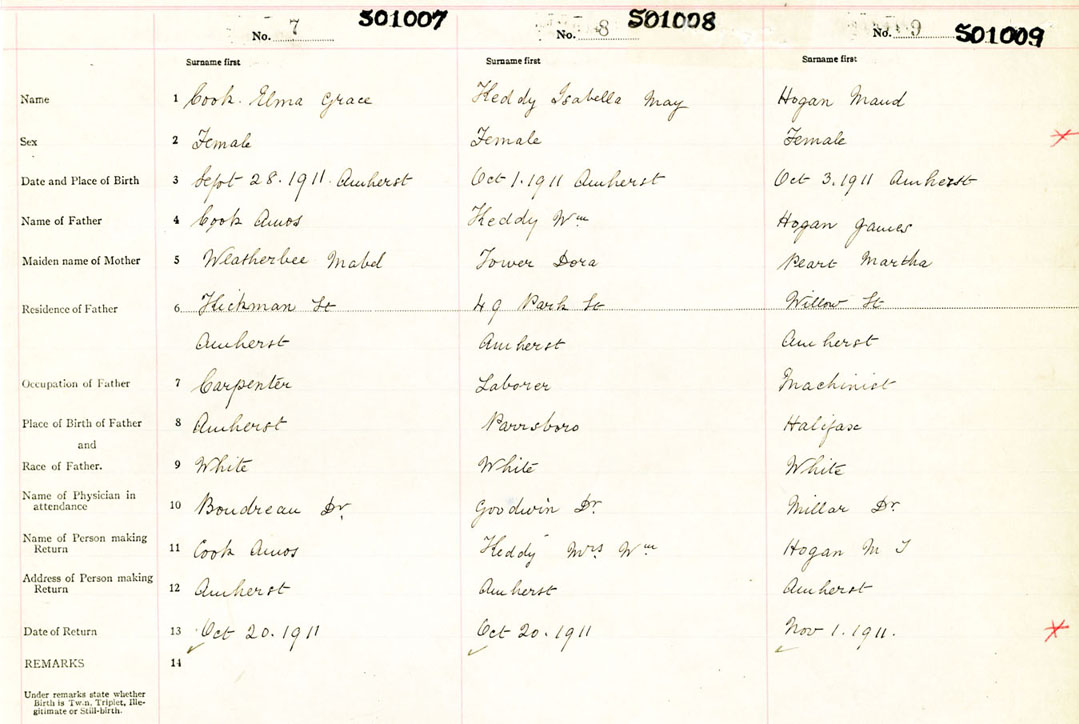 No. 7 S01007 No. 8 S01008 No. 9 S01009
Surname first Surname first Surname first
Name 1 Cook. Elma Grace Keddy Isabella May Hogan Maud
Sex 2 Female Female Female
Date and Place of Birth 3 Sept 28. 1911. Amherst Oct 1. 1911 Amherst Oct 3. 1911 Amherst
Name of Father 4 Cook Amos Keddy Wm Hogan James
Maiden name of Mother 5 Weatherbee Mabel Tower Dora Peart Martha
Residence of Father 6 Hickman St 49 Park St Willow St
Amherst Amherst Amherst
Occupation of Father 7 Carpenter Laborer Machinist
Place of Birth of Father 8 Amherst Parrsboro Halifax
and
Race of Father. 9 White White White
Name of Physician in
attendance 10 Boudreau Dr. Goodwin Dr. Millar Dr.
Name of Person making
Return 11 Cook Amos Keddy Mrs Wm Hogan M J
Address of Person making
Return 12 Amherst Amherst Amherst
Date of Return 13 Oct 20. 1911 Oct 20. 1911 Nov 1. 1911.
REMARKS 14
Under remarks state whether
Birth is Twin, Triplet, Ille-
gitimate or Still-birth.